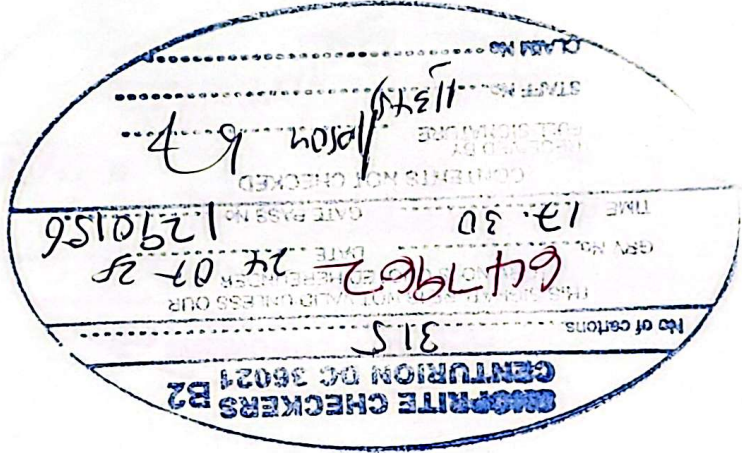 SHOPRITE CHECKERS B2
CENTURION DC 36021
No of cartons 315
THIS SIGNATURE IS NOT VALID UNLESS OUR
GRV No. IS QUOTED HEREUNDER
GRV No. 647962 DATE 24 07 25
TIME 17.30 GATE PASS No 1290156
CONTENTS NOT CHECKED
RECEIVED BY
FULL SIGNATURE
STAFF No
CLAIM No